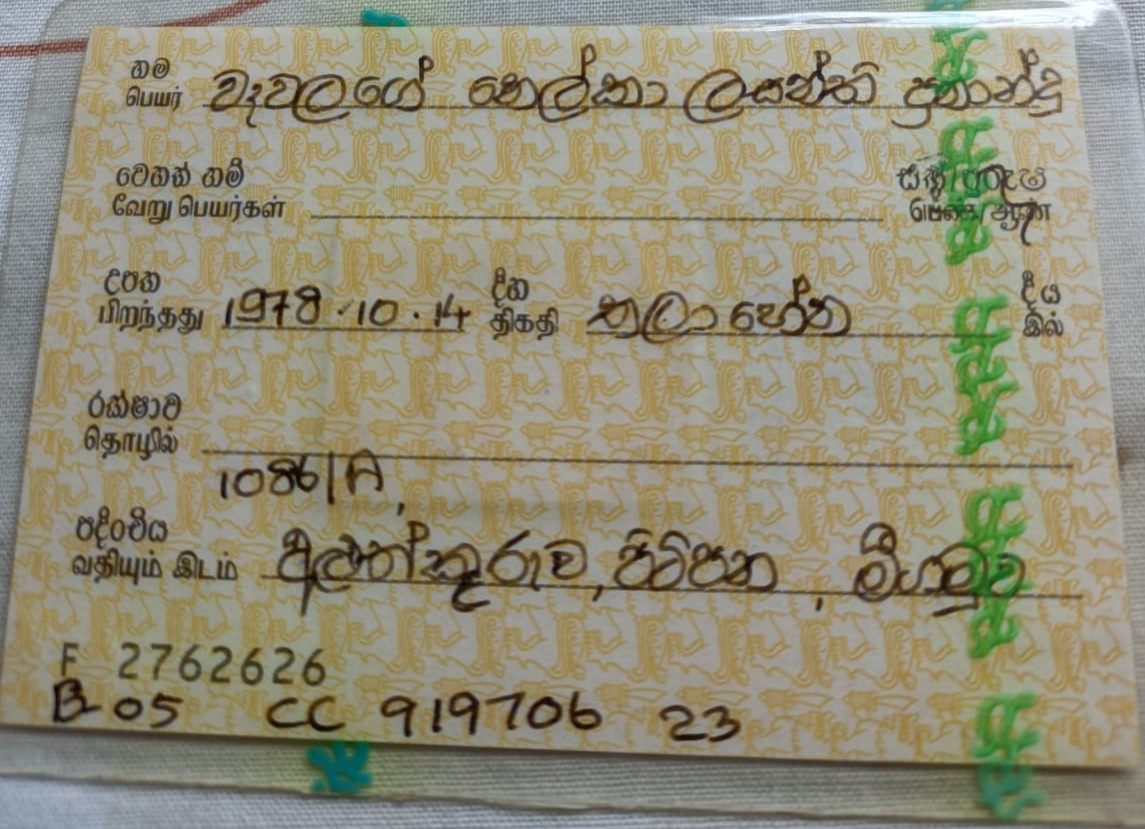 නම වෑවලගේ නෙල්කා ලසන්ති ප්‍රනාන්දු
பெயர்
වෙනත් නම් ස්ත්‍රී/පුරුෂ
வேறு பெயர்கள் பெண்/ஆண்
උපත 1978.10.14 දින තලාහේන දීය
பிறந்தது திகதி இல்
රක්ෂාව
தொழில்
1086/A,
පදිංචිය අලුත්කූරුව, පිටිපන, මීගමුව
வதியும் இடம்
F 2762626
B 05 CC 919706 23